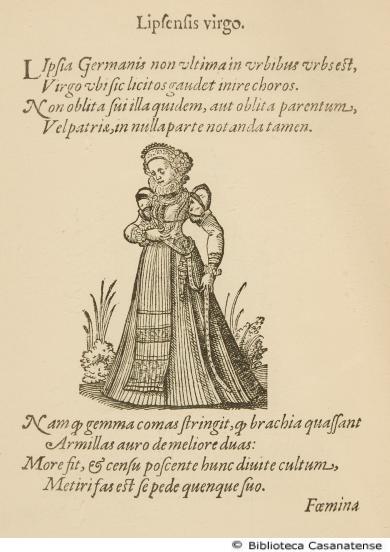 Lipsensis virgo.
LIpsia Germanis non vltima in vrbibus vrbs est,
Virgo vbi sic licitos gaudet inire choros.
Non oblita sui illa quidem, aut oblita parentum,
Vel patriæ, in nulla parte notanda tamen.
Nam ꝙ gemma comas stringit, ꝙ brachia quassant
Armillas auro de meliore duas:
More fit, & censu poscente hunc diuite cultum,
Metiri fas est se pede quenque suo.
Fœmina
© Biblioteca Casanatense